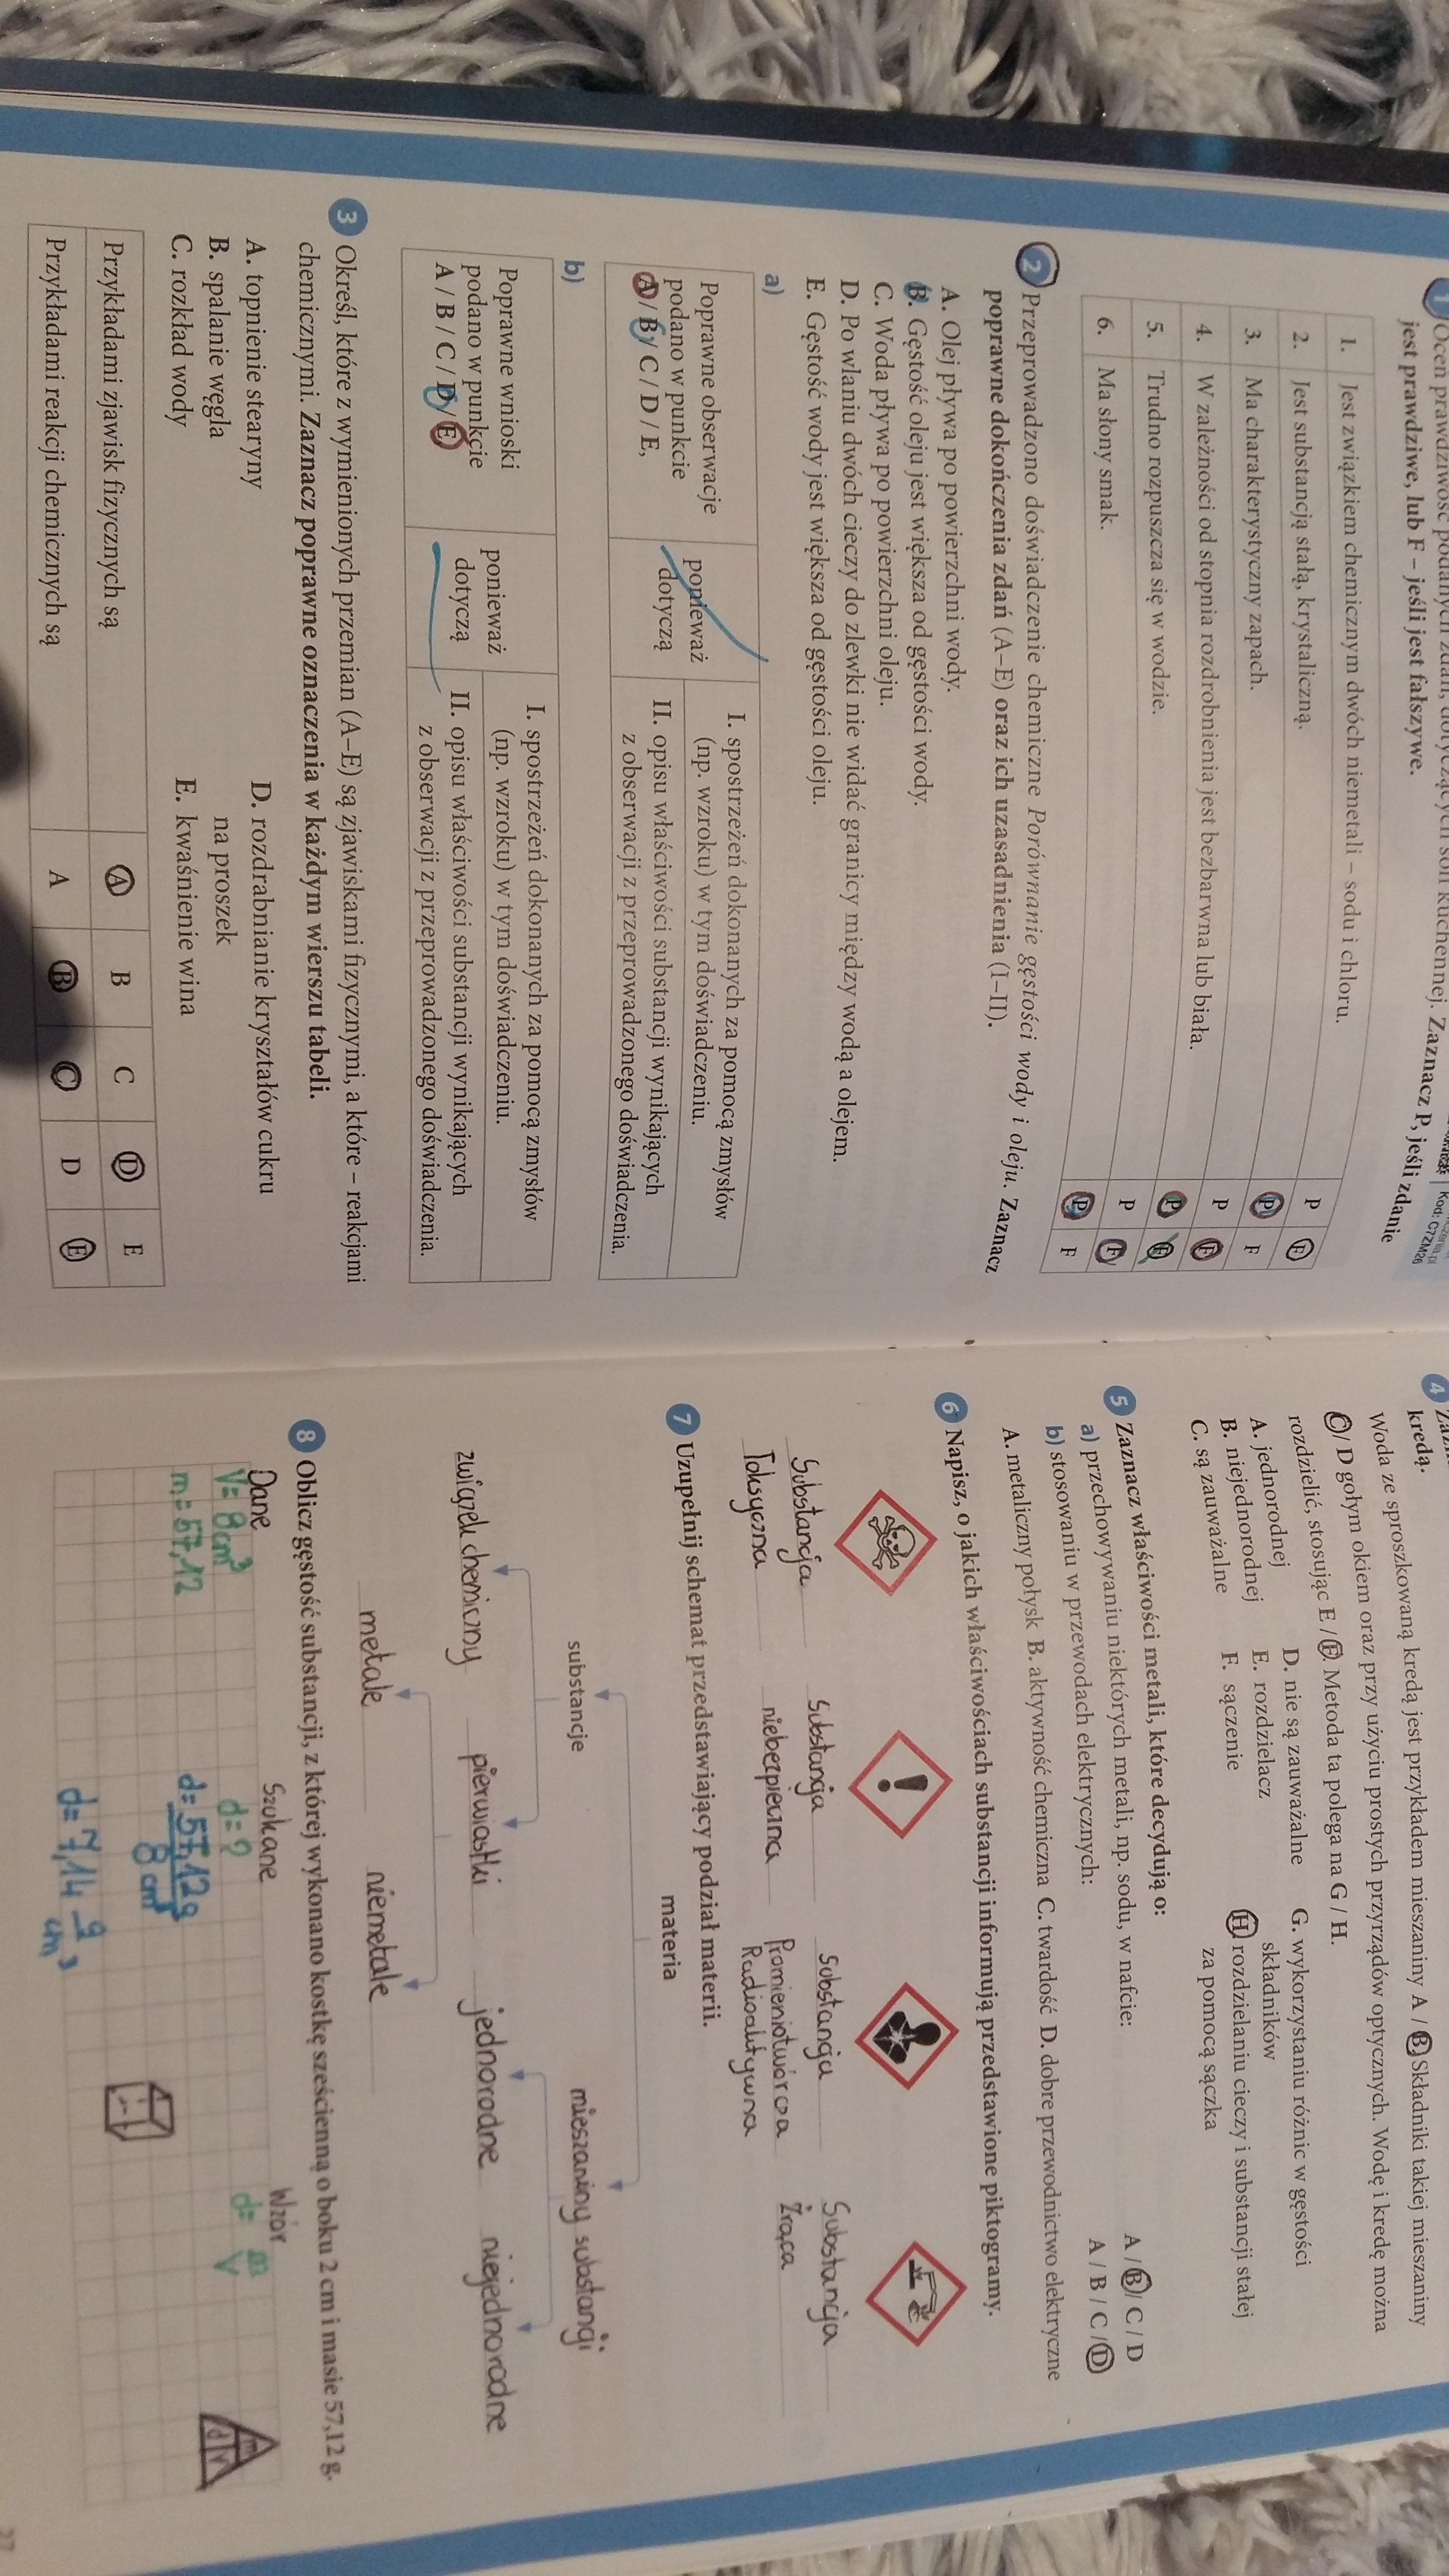 1 Oceń prawdziwość podanych zdań, dotyczących soli kuchennej. Zaznacz P, jeśli zdanie
jest prawdziwe, lub F – jeśli jest fałszywe.
Kod: C7ZM26
1. Jest związkiem chemicznym dwóch niemetali – sodu i chloru. P F
2. Jest substancją stałą, krystaliczną. P F
3. Ma charakterystyczny zapach. P F
4. W zależności od stopnia rozdrobnienia jest bezbarwna lub biała. P F
5. Trudno rozpuszcza się w wodzie. P F
6. Ma słony smak. P F
2 Przeprowadzono doświadczenie chemiczne Porównanie gęstości wody i oleju. Zaznacz
poprawne dokończenia zdań (A–E) oraz ich uzasadnienia (I–II).
A. Olej pływa po powierzchni wody.
B. Gęstość oleju jest większa od gęstości wody.
C. Woda pływa po powierzchni oleju.
D. Po wlaniu dwóch cieczy do zlewki nie widać granicy między wodą a olejem.
E. Gęstość wody jest większa od gęstości oleju.
a)
Poprawne obserwacje
podano w punkcie
A / B / C / D / E,
ponieważ
dotyczą
I. spostrzeżeń dokonanych za pomocą zmysłów
(np. wzroku) w tym doświadczeniu.
II. opisu właściwości substancji wynikających
z obserwacji z przeprowadzonego doświadczenia.
b)
Poprawne wnioski
podano w punkcie
A / B / C / D / E
ponieważ
dotyczą
I. spostrzeżeń dokonanych za pomocą zmysłów
(np. wzroku) w tym doświadczeniu.
II. opisu właściwości substancji wynikających
z obserwacji z przeprowadzonego doświadczenia.
3 Określ, które z wymienionych przemian (A–E) są zjawiskami fizycznymi, a które – reakcjami
chemicznymi. Zaznacz poprawne oznaczenia w każdym wierszu tabeli.
A. topnienie stearyny
B. spalanie węgla
C. rozkład wody
D. rozdrabnianie kryształów cukru
na proszek
E. kwaśnienie wina
Przykładami zjawisk fizycznych są A B C D E
Przykładami reakcji chemicznych są A B C D E
4
kredą.
Woda ze sproszkowaną kredą jest przykładem mieszaniny A / B. Składniki takiej mieszaniny
C / D gołym okiem oraz przy użyciu prostych przyrządów optycznych. Wodę i kredę można
rozdzielić, stosując E / F. Metoda ta polega na G / H.
A. jednorodnej
B. niejednorodnej
C. są zauważalne
D. nie są zauważalne
E. rozdzielacz
F. sączenie
G. wykorzystaniu różnic w gęstości
składników
H. rozdzielaniu cieczy i substancji stałej
za pomocą sączka
5 Zaznacz właściwości metali, które decydują o:
a) przechowywaniu niektórych metali, np. sodu, w nafcie: A / B / C / D
b) stosowaniu w przewodach elektrycznych: A / B / C / D
A. metaliczny połysk B. aktywność chemiczna C. twardość D. dobre przewodnictwo elektryczne
6 Napisz, o jakich właściwościach substancji informują przedstawione piktogramy.
Substancja
Toksyczna
Substancja
niebezpieczna
Substancja
Promieniotwórcza
Radioaktywna
Substancja
Żrąca
7 Uzupełnij schemat przedstawiający podział materii.
materia
substancje
mieszaniny substancji
związek chemiczny
pierwiastki
jednorodne
niejednorodne
metale
niemetale
8 Oblicz gęstość substancji, z której wykonano kostkę sześcienną o boku 2 cm i masie 57,12 g.
Dane
V= 8cm³
m= 57,12
Szukane
d= ?
Wzór
d= m
V
d= 57,12g
8 cm³
d= 7,14 g
cm³
m
d V
27